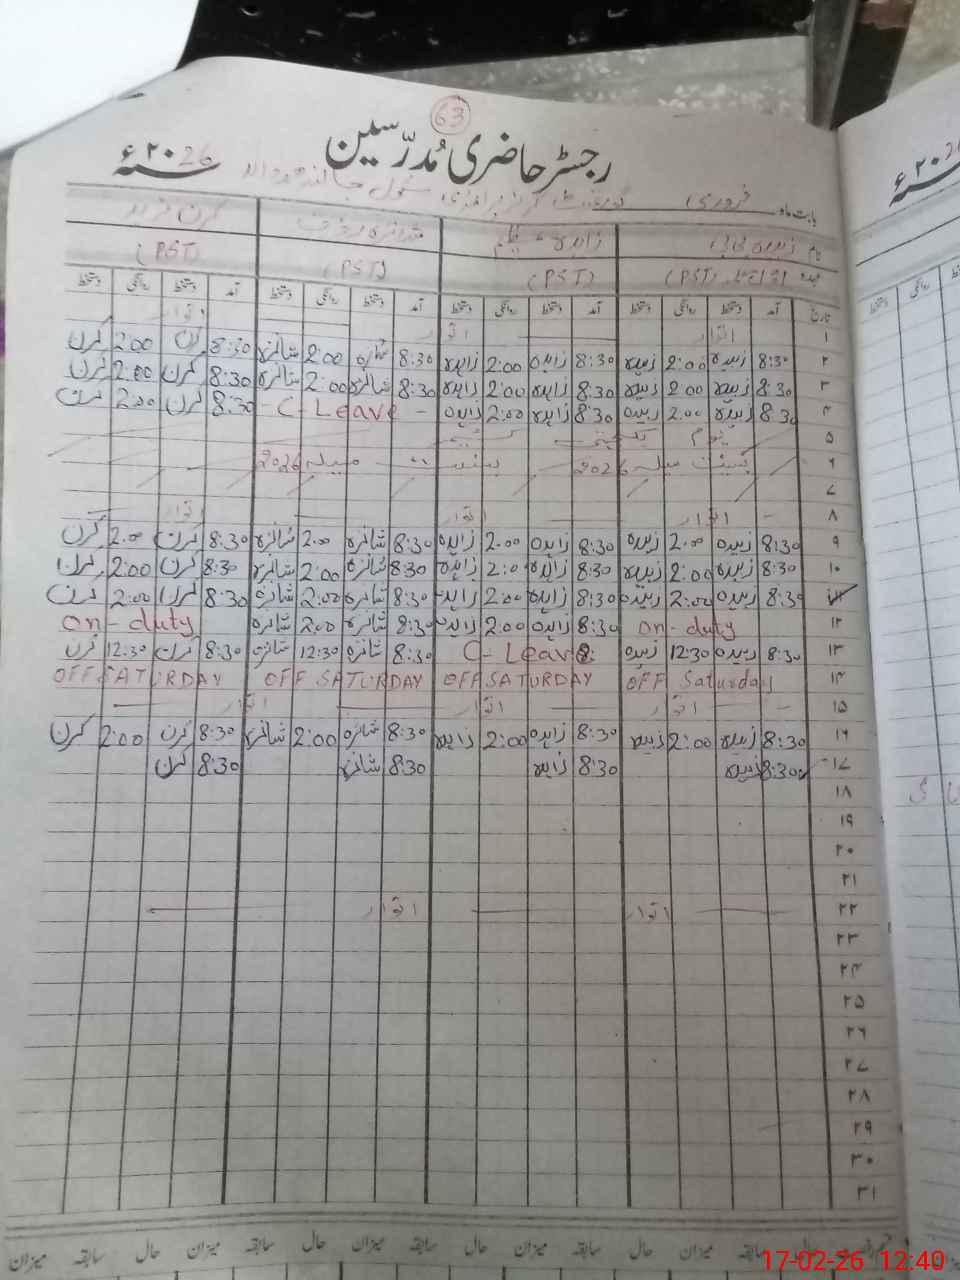 63
رجسٹر حاضری مدرّسین
۲۰26ء
بابت ماہ فروری گورنمنٹ گرلز پرائمری سکول
نام زبیدہ بی بی زاہدہ کرن
عہدہ (PST) (PST) (PST) (PST)
تاریخ آمد دستخط روانگی دستخط آمد دستخط روانگی دستخط آمد دستخط روانگی دستخط آمد دستخط روانگی دستخط
۱ اتوار اتوار اتوار
۲ 8:30 زبیدہ 2:00 زبیدہ 8:30 زاہدہ 2:00 زاہدہ 8:30 شائزہ 2:00 شائزہ 8:30 کرن 2:00 کرن
۳ 8:30 زبیدہ 2:00 زبیدہ 8:30 زاہدہ 2:00 زاہدہ 8:30 شائزہ 2:00 شائزہ 8:30 کرن 2:00 کرن
۴ 8:30 زبیدہ 2:00 زبیدہ 8:30 زاہدہ 2:00 زاہدہ - C-Leave - 8:30 کرن 2:00 کرن
۵ یوم یکجہتی کشمیر
۶ بسنت میلہ 2026 بسنت میلہ 2026
۷
۸ اتوار اتوار اتوار
۹ 8:30 زبیدہ 2:00 زبیدہ 8:30 زاہدہ 2:00 زاہدہ 8:30 شائزہ 2:00 شائزہ 8:30 کرن 2:00 کرن
۱۰ 8:30 زبیدہ 2:00 زبیدہ 8:30 زاہدہ 2:0 زاہدہ 8:30 شائزہ 2:00 شائزہ 8:30 کرن 2:00 کرن
۱۱ 8:30 زبیدہ 2:00 زبیدہ 8:30 زاہدہ 2:00 زاہدہ 8:30 شائزہ 2:00 شائزہ 8:30 کرن 2:00 کرن
۱۲ on-duty 8:30 زاہدہ 2:00 زاہدہ 8:30 شائزہ 2:00 شائزہ on-duty
۱۳ 8:30 زبیدہ 12:30 زبیدہ C-Leave 8:30 شائزہ 12:30 شائزہ 8:30 کرن 12:30 کرن
۱۴ OFF Saturday OFF SATURDAY OFF SATURDAY OFF SATURDAY
۱۵ اتوار اتوار اتوار
۱۶ 8:30 زبیدہ 2:00 زبیدہ 8:30 زاہدہ 2:00 زاہدہ 8:30 شائزہ 2:00 شائزہ 8:30 کرن 2:00 کرن
۱۷ 8:30 زبیدہ 8:30 زاہدہ 8:30 شائزہ 8:30 کرن
۱۸
۱۹
۲۰
۲۱
۲۲ اتوار اتوار
۲۳
۲۴
۲۵
۲۶
۲۷
۲۸
۲۹
۳۰
۳۱
حال سابقہ میزان حال سابقہ میزان حال سابقہ میزان حال سابقہ میزان
17-02-26 12:40